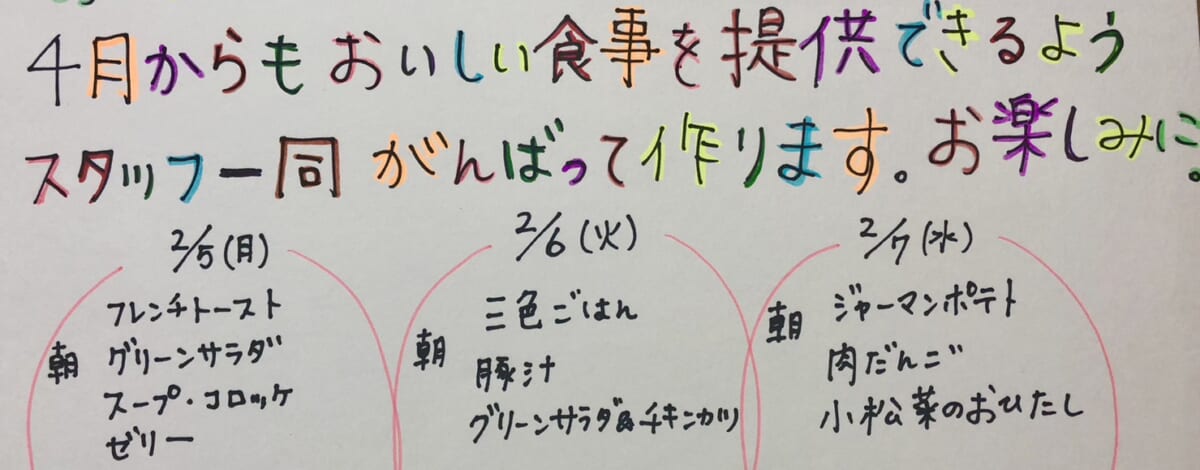 4月からもおいしい食事を提供できるよう
スタッフ一同 がんばって作ります。お楽しみに。
2/5(月)
朝
フレンチトースト
グリーンサラダ
スープ・コロッケ
ゼリー
2/6(火)
朝
三色ごはん
豚汁
グリーンサラダ&チキンカツ
2/7(水)
朝
ジャーマンポテト
肉だんご
小松菜のおひたし